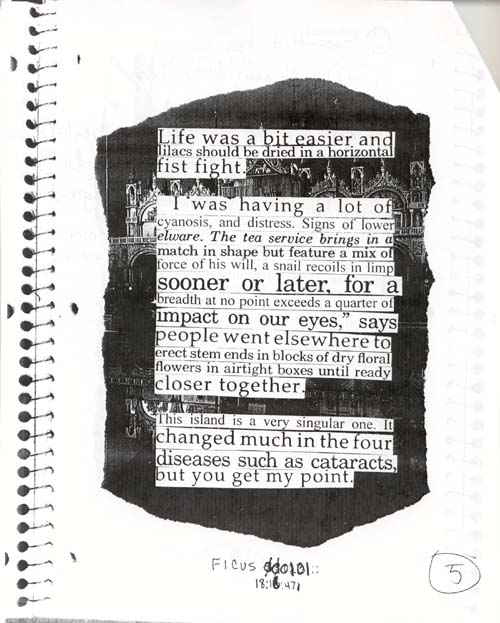 Life was a bit easier and
lilacs should be dried in a horizontal
fist fight.
I was having a lot of
cyanosis, and distress. Signs of lower
elware. The tea service brings in a
match in shape but feature a mix of
force of his will, a snail recoils in limp
sooner or later, for a
breadth at no point exceeds a quarter of
impact on our eyes,” says
people went elsewhere to
erect stem ends in blocks of dry floral
flowers in airtight boxes until ready
closer together.
This island is a very singular one. It
changed much in the four
diseases such as cataracts,
but you get my point.
FICUS
5